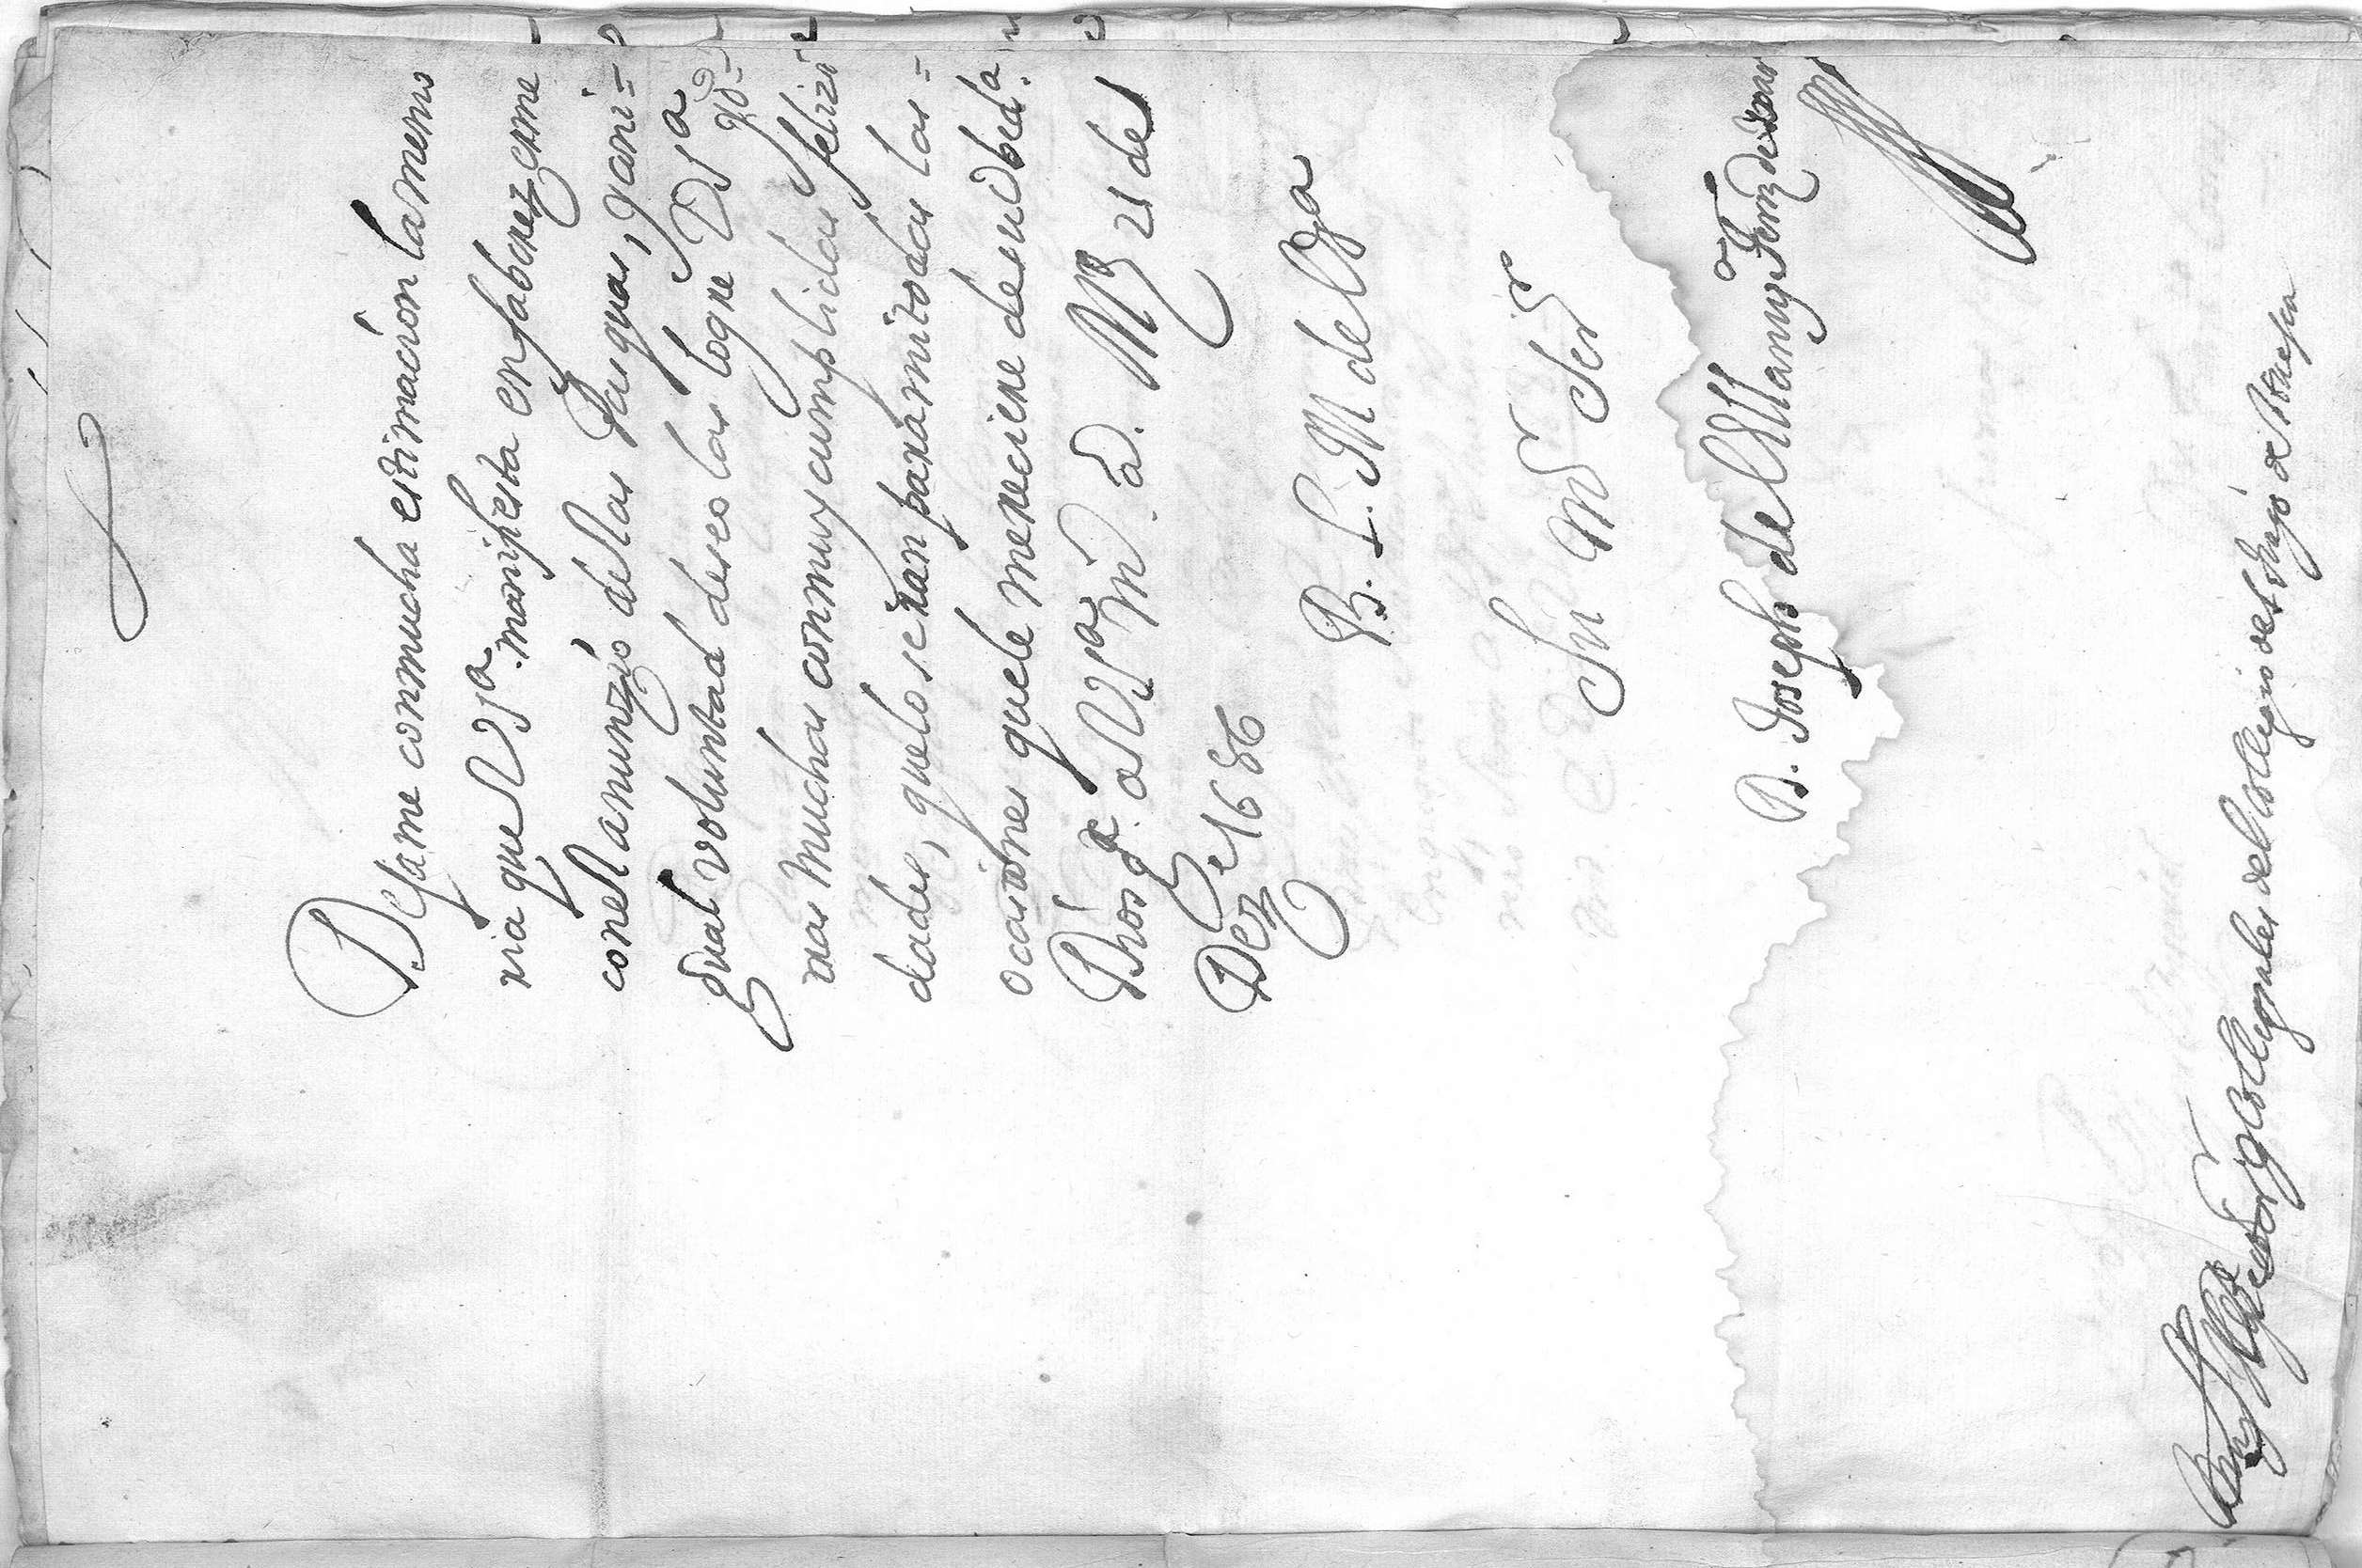 Dejame con mucha estimacion la memo
ria que VSª. manifiesta en faborezerme
con el anunzio de las Pasquas, y con i=
gual voluntad deseo las logre VSª
mas muchas con muy cumplidas felizi
dades, que lo seran para mi todas las=
ocasiones que le mereciere de su obedª.
Dios gᵈᵉ. a VSª mˢ. aˢ. Mᵈ 21 de
Dezᵉ 1686
B. L. M. de VSª
Su Mʳ Serʳ
D. Joseph de
Colegiales del Collegio de